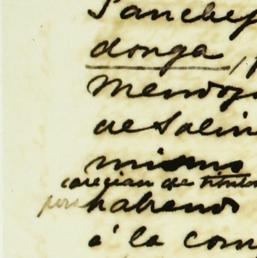 Sanchez
donga,
Mendoza
de Salin
mismo
carecian de titulo
habiendo
á la com